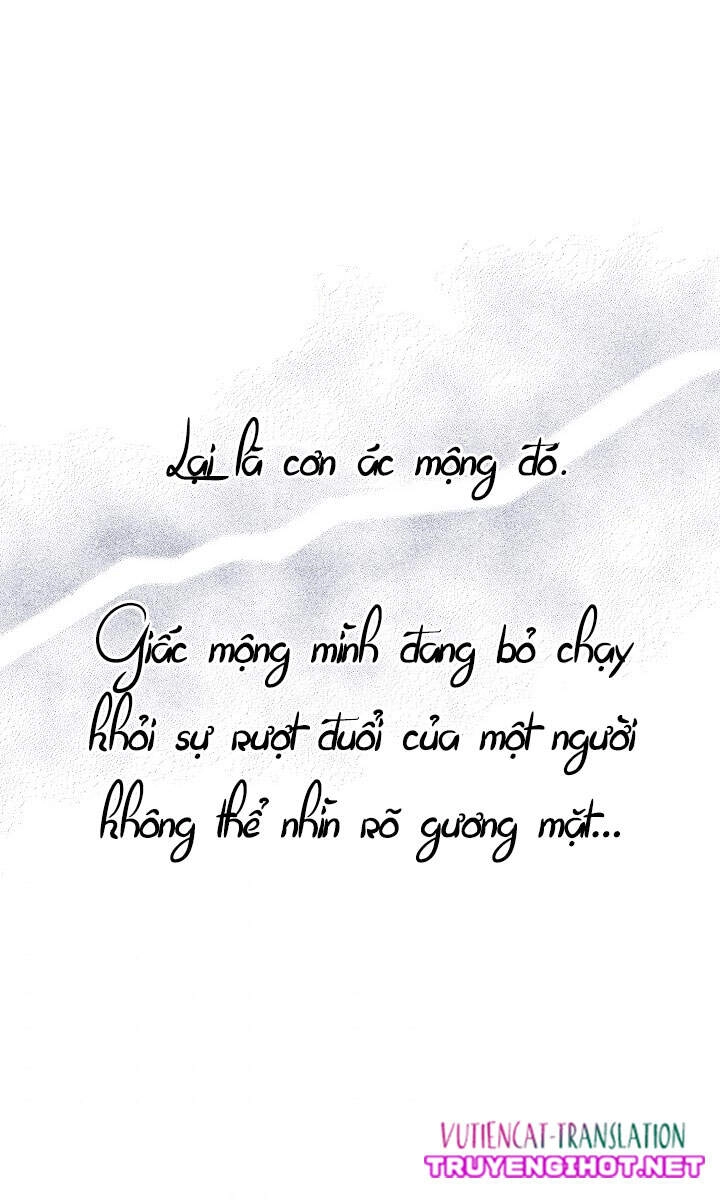 Lại là cơn ác mộng đó.
Giấc mộng mình đang bỏ chạy
khỏi sự rượt đuổi của một người
không thể nhìn rõ gương mặt...
VUTIENCAT-TRANSLATION
TRUYENGIHOT.NET